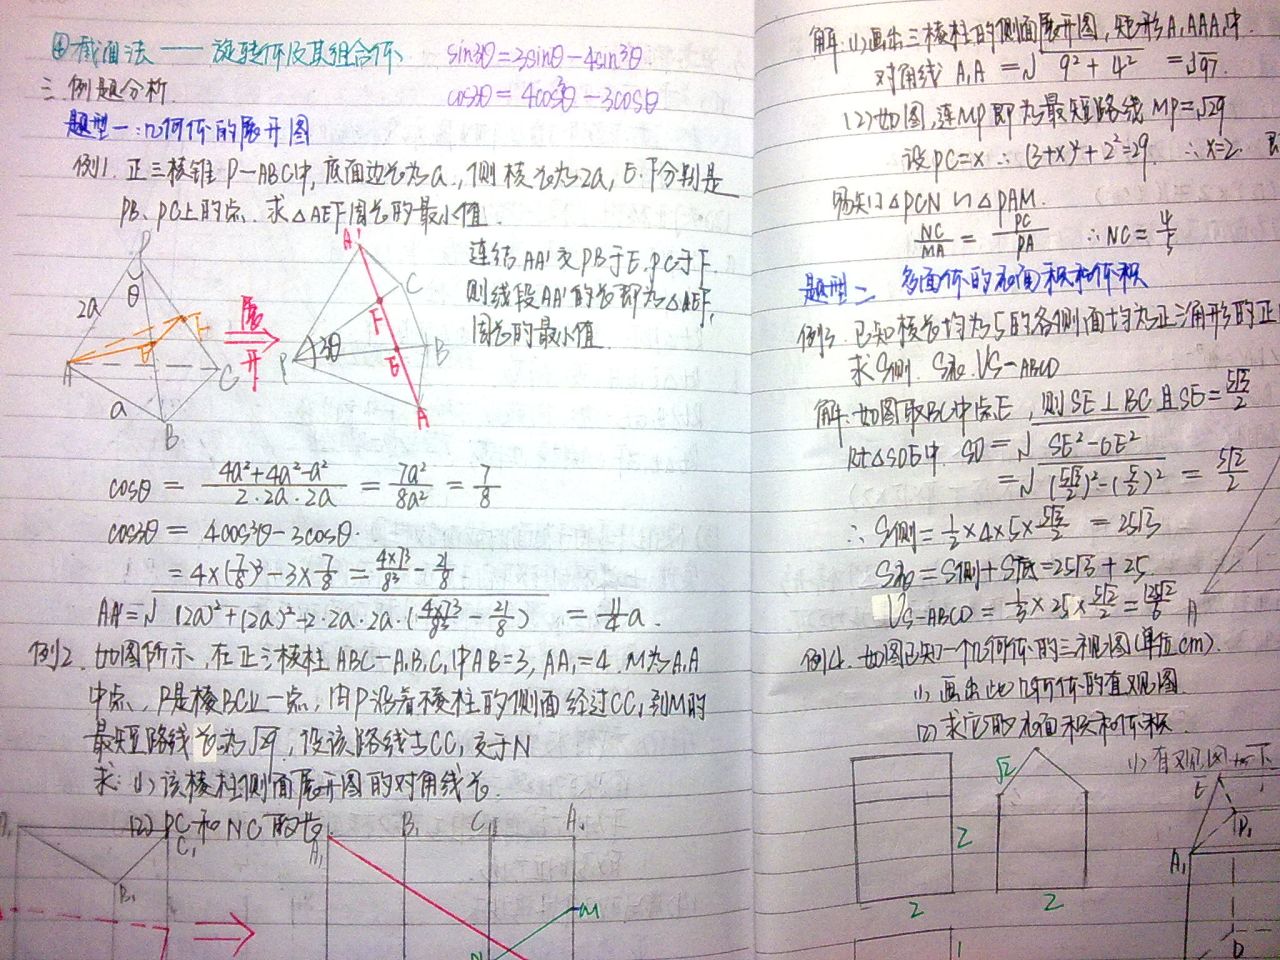 ④截面法 —— 旋转体及其组合体
sin3θ=3sinθ-4sin³θ
cos3θ=4cos³θ-3cosθ
三.例题分析.
题型一:几何体的展开图
例1.正三棱锥P-ABC中,底面边长为a,侧棱长为2a,E.F分别是
PB、PC上的点.求△AEF周长的最小值.
P
2a
θ
A
E
F
C
a
B
展
开
A'
C
F
P
3θ
B
E
A
连结AA'交PB于E.PC于F.
则线段AA'的长即为△AEF
周长的最小值
cosθ = 4a²+4a²-a² / 2·2a·2a = 7a² / 8a² = 7/8
cos3θ = 4cos³θ-3cosθ.
= 4×(7/8)³-3×7/8 = 4×7³/8³ - 21/8
AA'=√(2a)²+(2a)²-2·2a·2a·(4×7³/8³ - 21/8) = 11/4 a.
例2.如图所示,在正三棱柱ABC-A₁B₁C₁中AB=3,AA₁=4.M为A₁A
中点,P是棱BC上一点,由P沿着棱柱的侧面经过CC₁到M的
最短路线长为√29,设该路线与CC₁交于N
求:(1)该棱柱侧面展开图的对角线长.
(2)PC和NC的长.
A₁
C₁
B₁
A₁
B₁
C₁
A₁
M
N
解:(1)画出三棱柱的侧面展开图,矩形A₁AAA₁中
对角线A₁A = √9²+4² = √97.
(2)如图,连MP即为最短路线MP=√29
设PC=x ∴(3+x)²+2²=29. ∴x=2.
易知△PCN∽△PAM.
NC/MA = PC/PA ∴NC=4/5
题型二 多面体的表面积和体积
例3.已知棱长均为5的各侧面均为正三角形的正
求S侧.S表.VS-ABCD
解:如图取BC中点E,则SE⊥BC且SE=5√3/2
Rt△SOE中.SO=√SE²-OE²
=√(5√3/2)²-(5/2)² = 5√2/2
∴S侧=1/2×4×5×5√3/2 = 25√3
S表=S侧+S底=25√3+25
VS-ABCD=1/3×25×5√2/2=125√2/6
A
例4.如图已知一个几何体的三视图(单位cm).
(1)画出此几何体的直观图
(2)求它的表面积和体积.
(1)直观图如下
√2
2
2
2
1
E
D₁
A₁
D